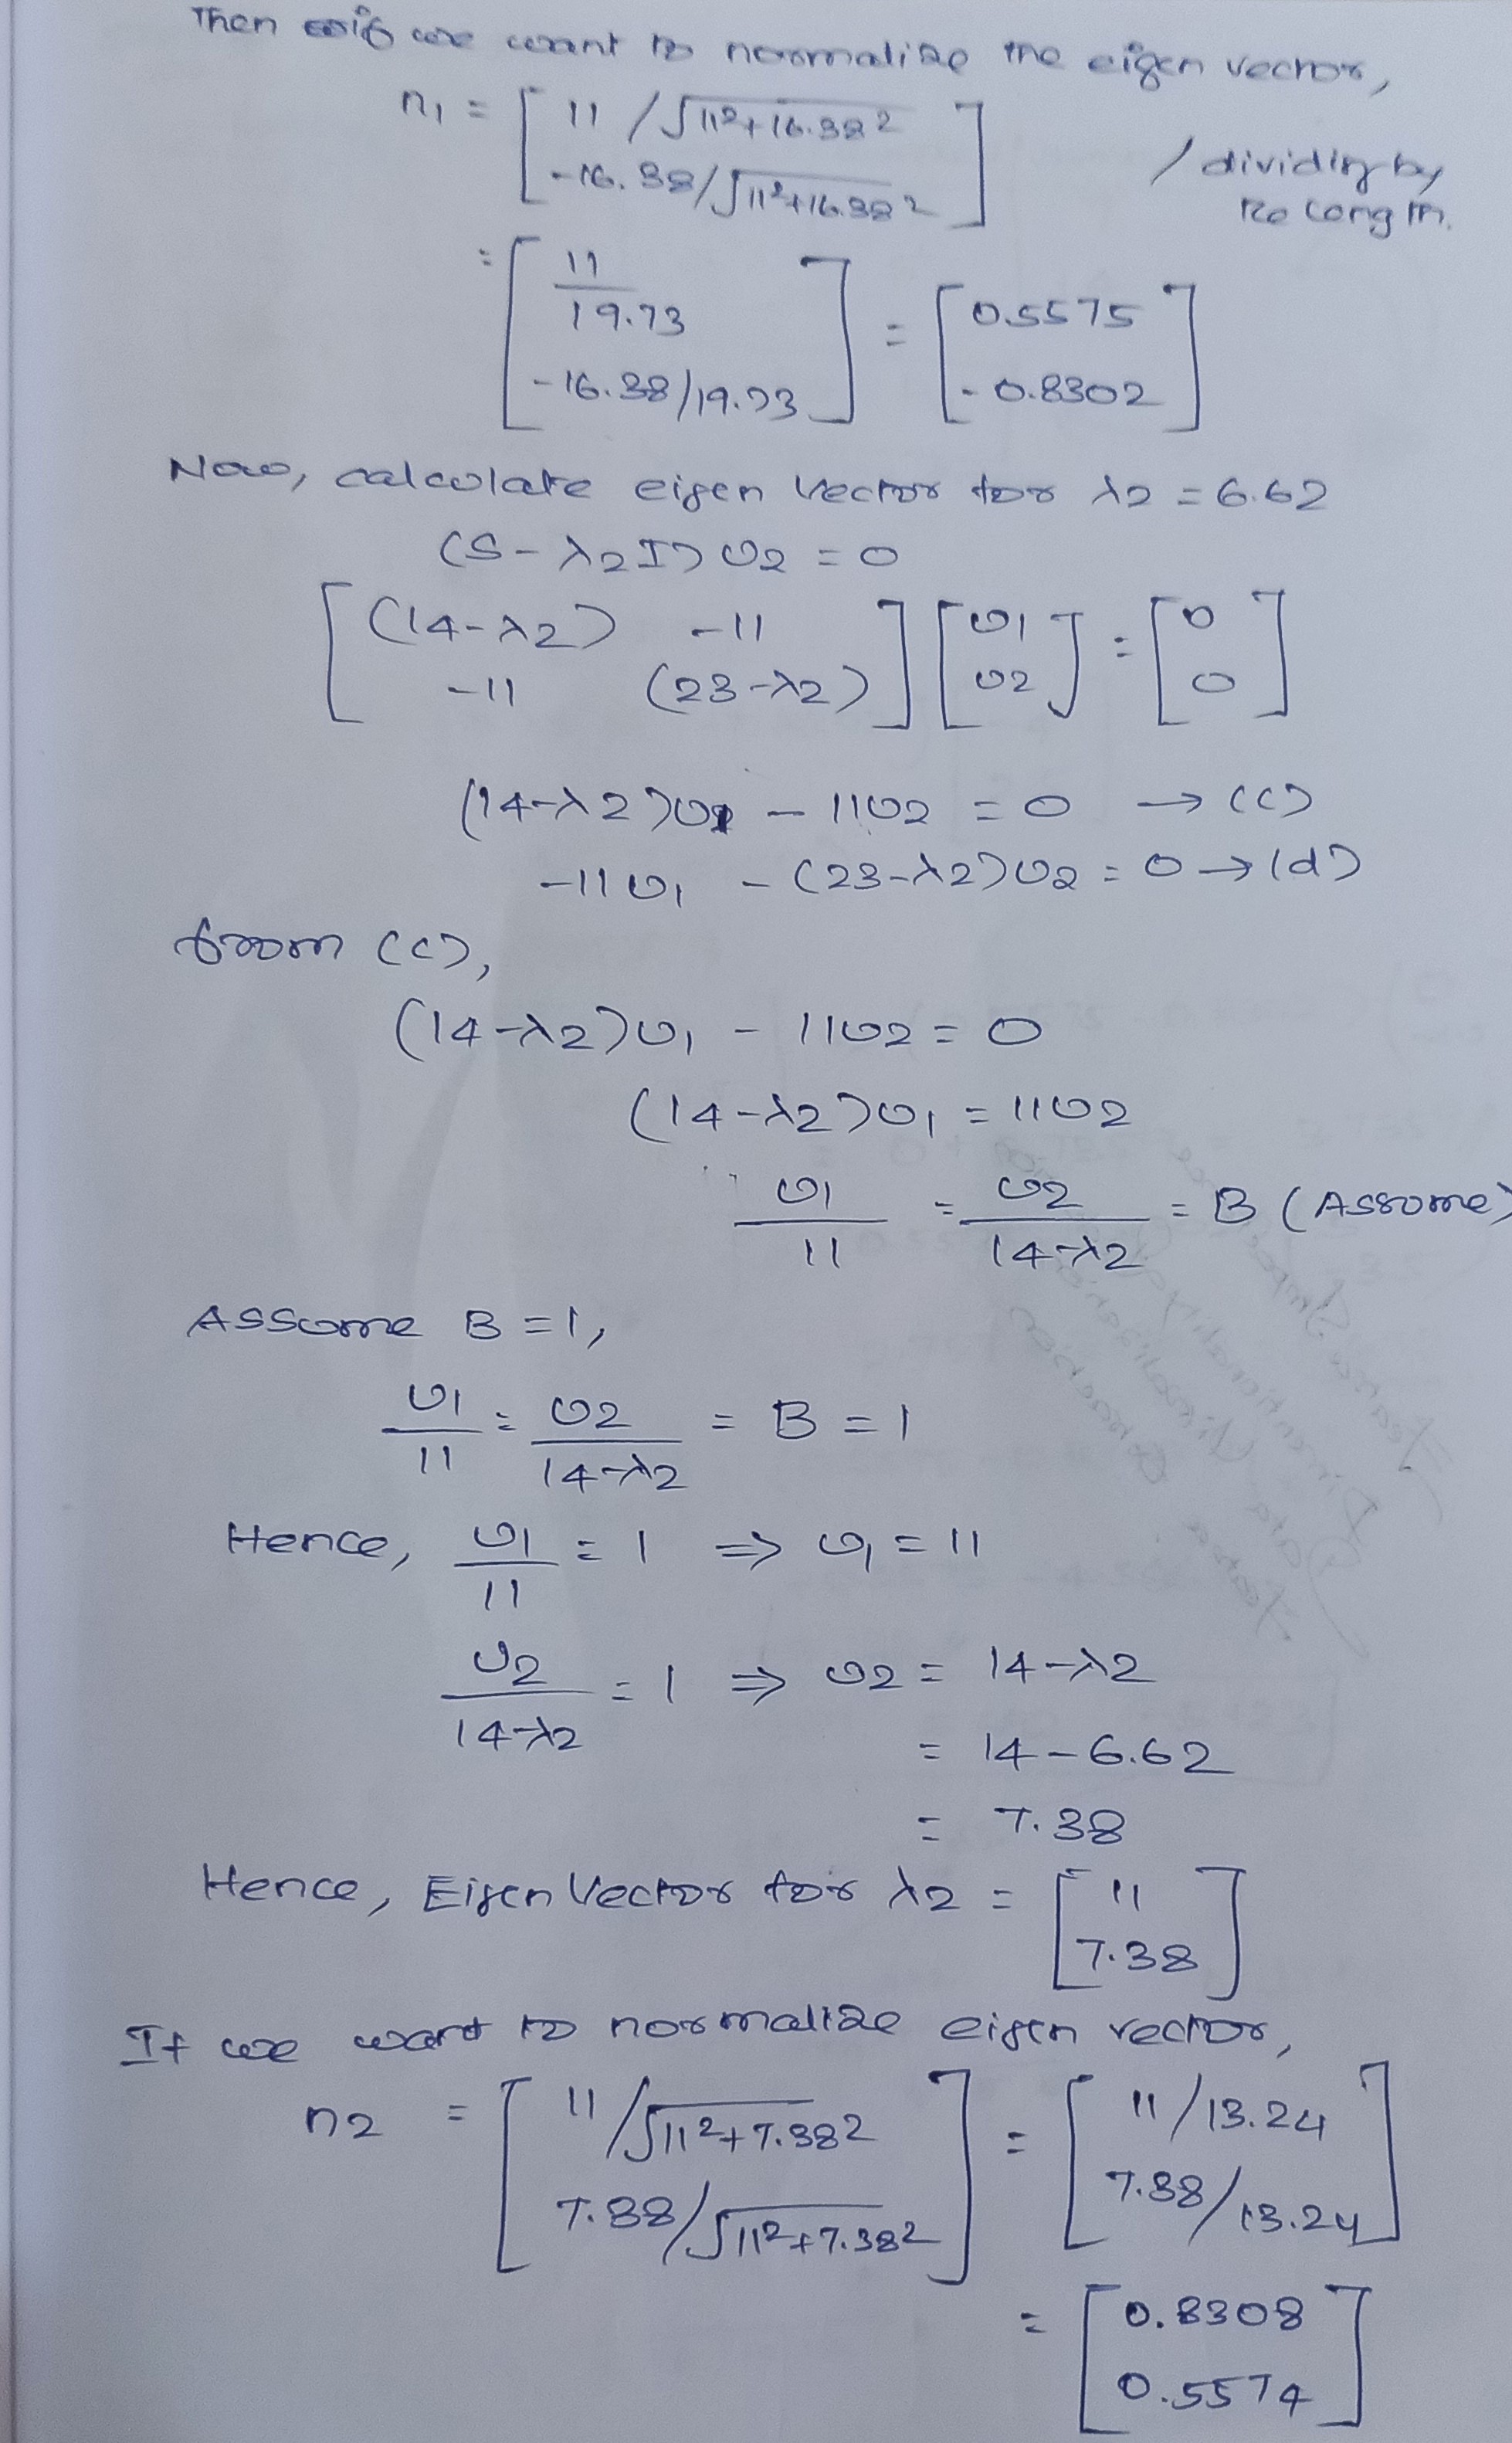 Then if we want to normalize the eigen vector,
n1 = [ 11 / √11²+16.38² ]
[ -16.38 / √11²+16.38² ] / dividing by
its length.
= [ 11/19.73 ] = [ 0.5575 ]
[ -16.38/19.73 ] [ -0.8302 ]
Now, calculate eigen vector for λ2 = 6.62
(S - λ2I) U2 = 0
[ (14-λ2) -11 ] [ U1 ] = [ 0 ]
[ -11 (23-λ2) ] [ U2 ] [ 0 ]
(14-λ2)U1 - 11U2 = 0 → (c)
-11U1 - (23-λ2)U2 = 0 → (d)
from (c),
(14-λ2)U1 - 11U2 = 0
(14-λ2)U1 = 11U2
U1/11 = U2/14-λ2 = B (Assome)
Assome B = 1,
U1/11 = U2/14-λ2 = B = 1
Hence, U1/11 = 1 ⇒ U1 = 11
U2/14-λ2 = 1 ⇒ U2 = 14-λ2
= 14 - 6.62
= 7.38
Hence, Eigen Vector for λ2 = [ 11 ]
[ 7.38 ]
If we want to normalize eigen vector,
n2 = [ 11/√11²+7.38² ] = [ 11/13.24 ]
[ 7.38/√11²+7.38² ] [ 7.38/13.24 ]
= [ 0.8308 ]
[ 0.5574 ]